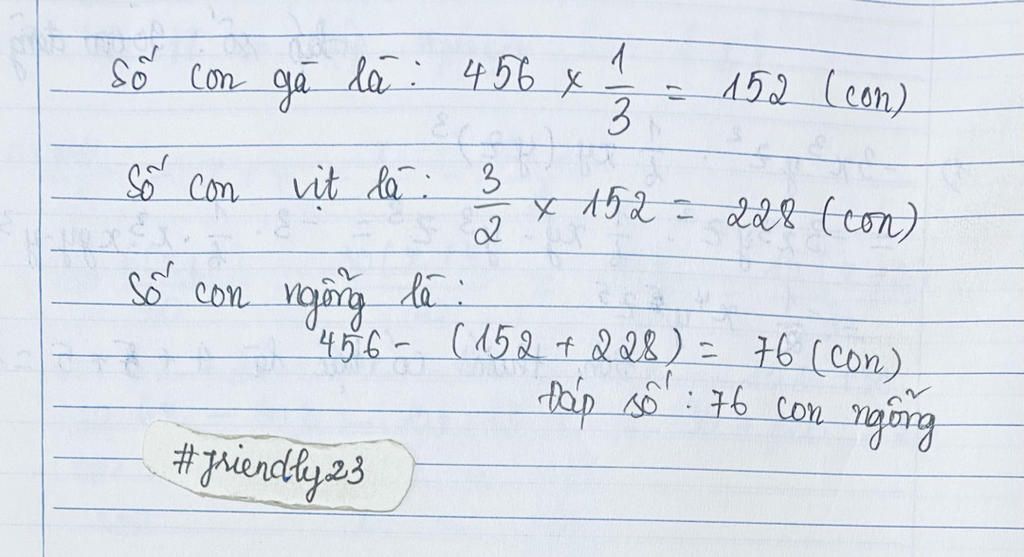 Số con gà là: 456 × 1/3 = 152 (con)
Số con vịt là: 3/2 × 152 = 228 (con)
Số con ngỗng là:
456 - (152 + 228) = 76 (con)
Đáp số: 76 con ngỗng
#friendly23